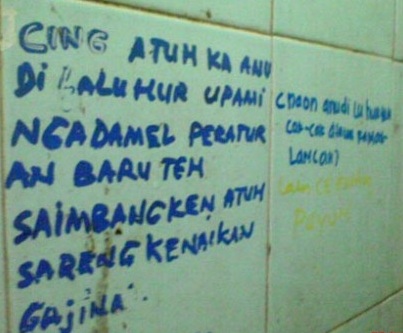 CING ATUH KA ANU
DI LALUHUR UPAMI
NGADAMEL PERATUR
AN BARU TEH
SAIMBANGKEN ATUH
SARENG KENAIKAN
GAJINA.
cnaon anu di
LANCAH)
PAYUN